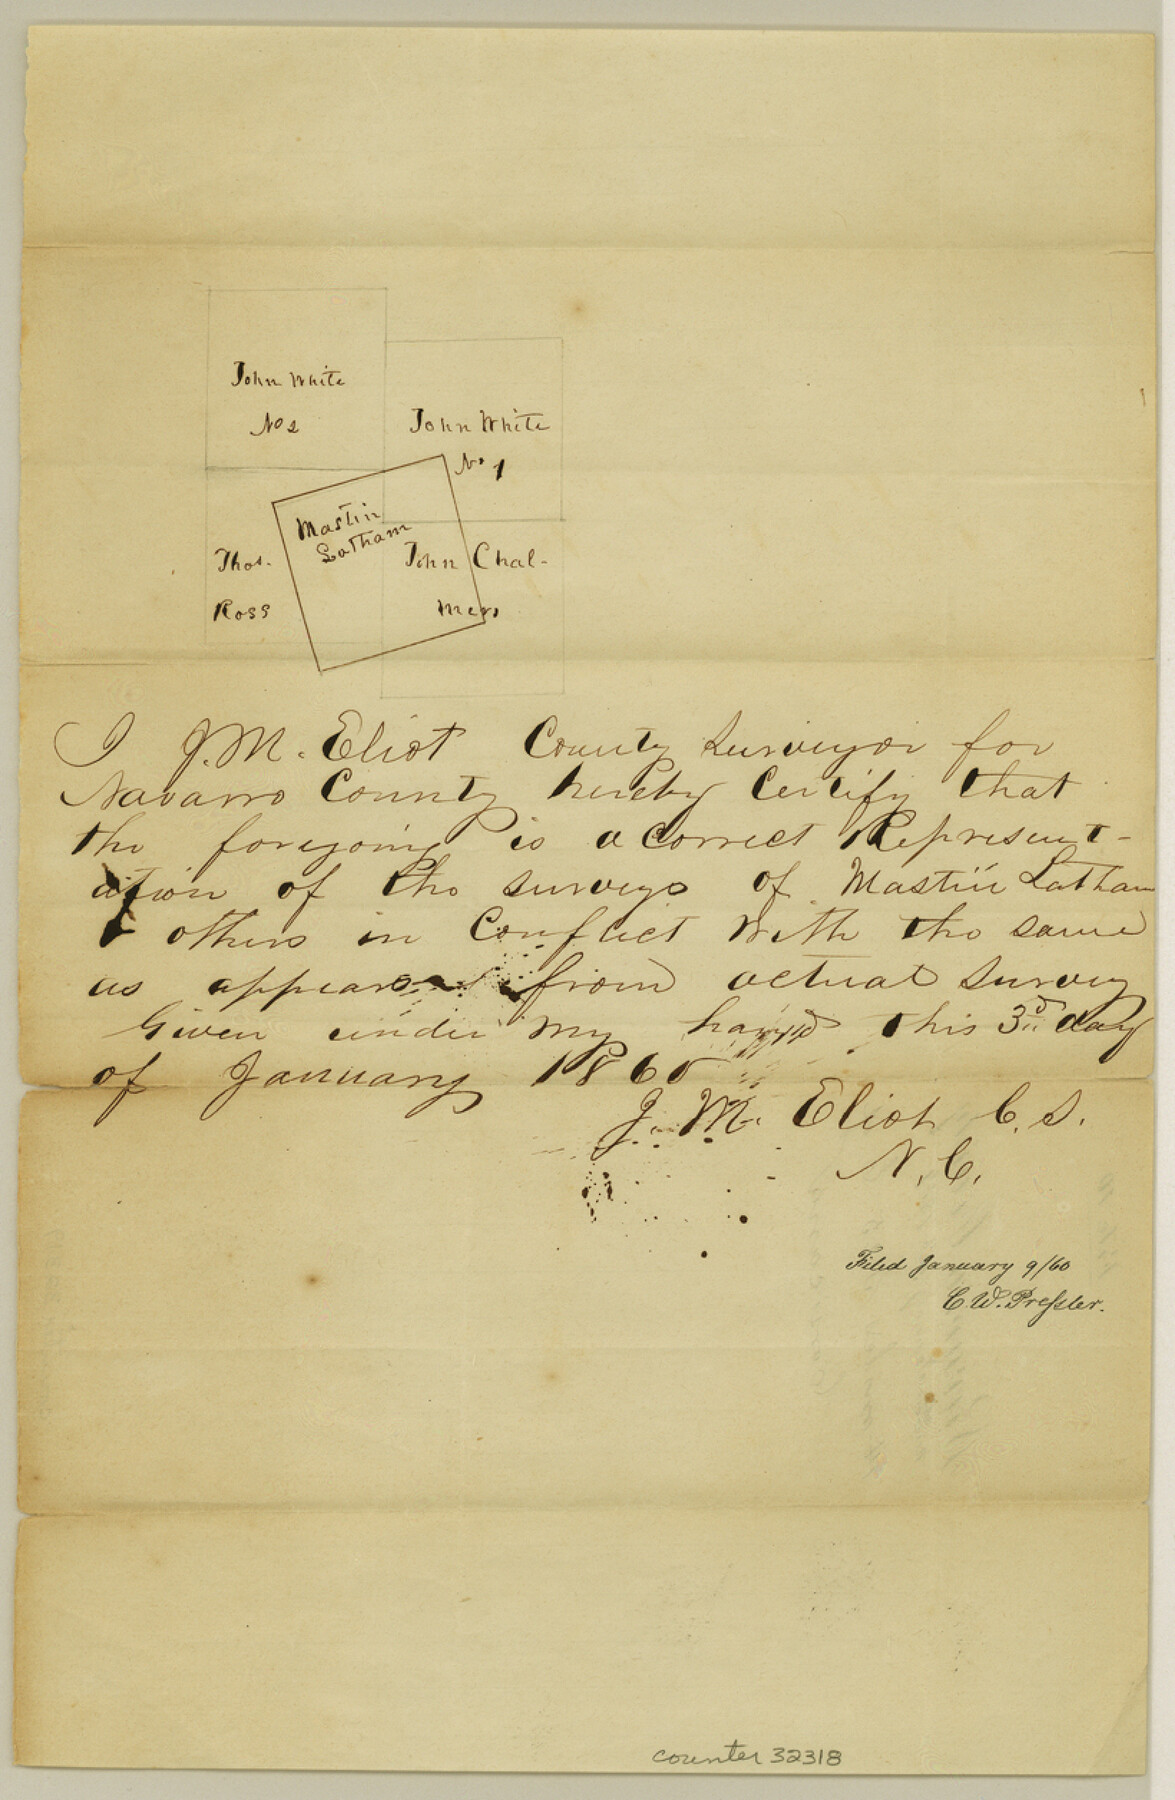 John White
No 2
John White
No 1
Mastin
Latham
Thos.
Ross
John Chal-
mers
I J.M. Eliot County Surveyor for
Navarro County hereby Certify that
the foregoing is a Correct Represent-
ation of the surveys of Mastin Latham
& others in Conflict with the same
as appears from actual survey
Given under my hand this 3rd day
of January 1860
J. M. Eliot C. S.
N. C.
Filed January 9/60
C. W. Pressler.
counter 32318